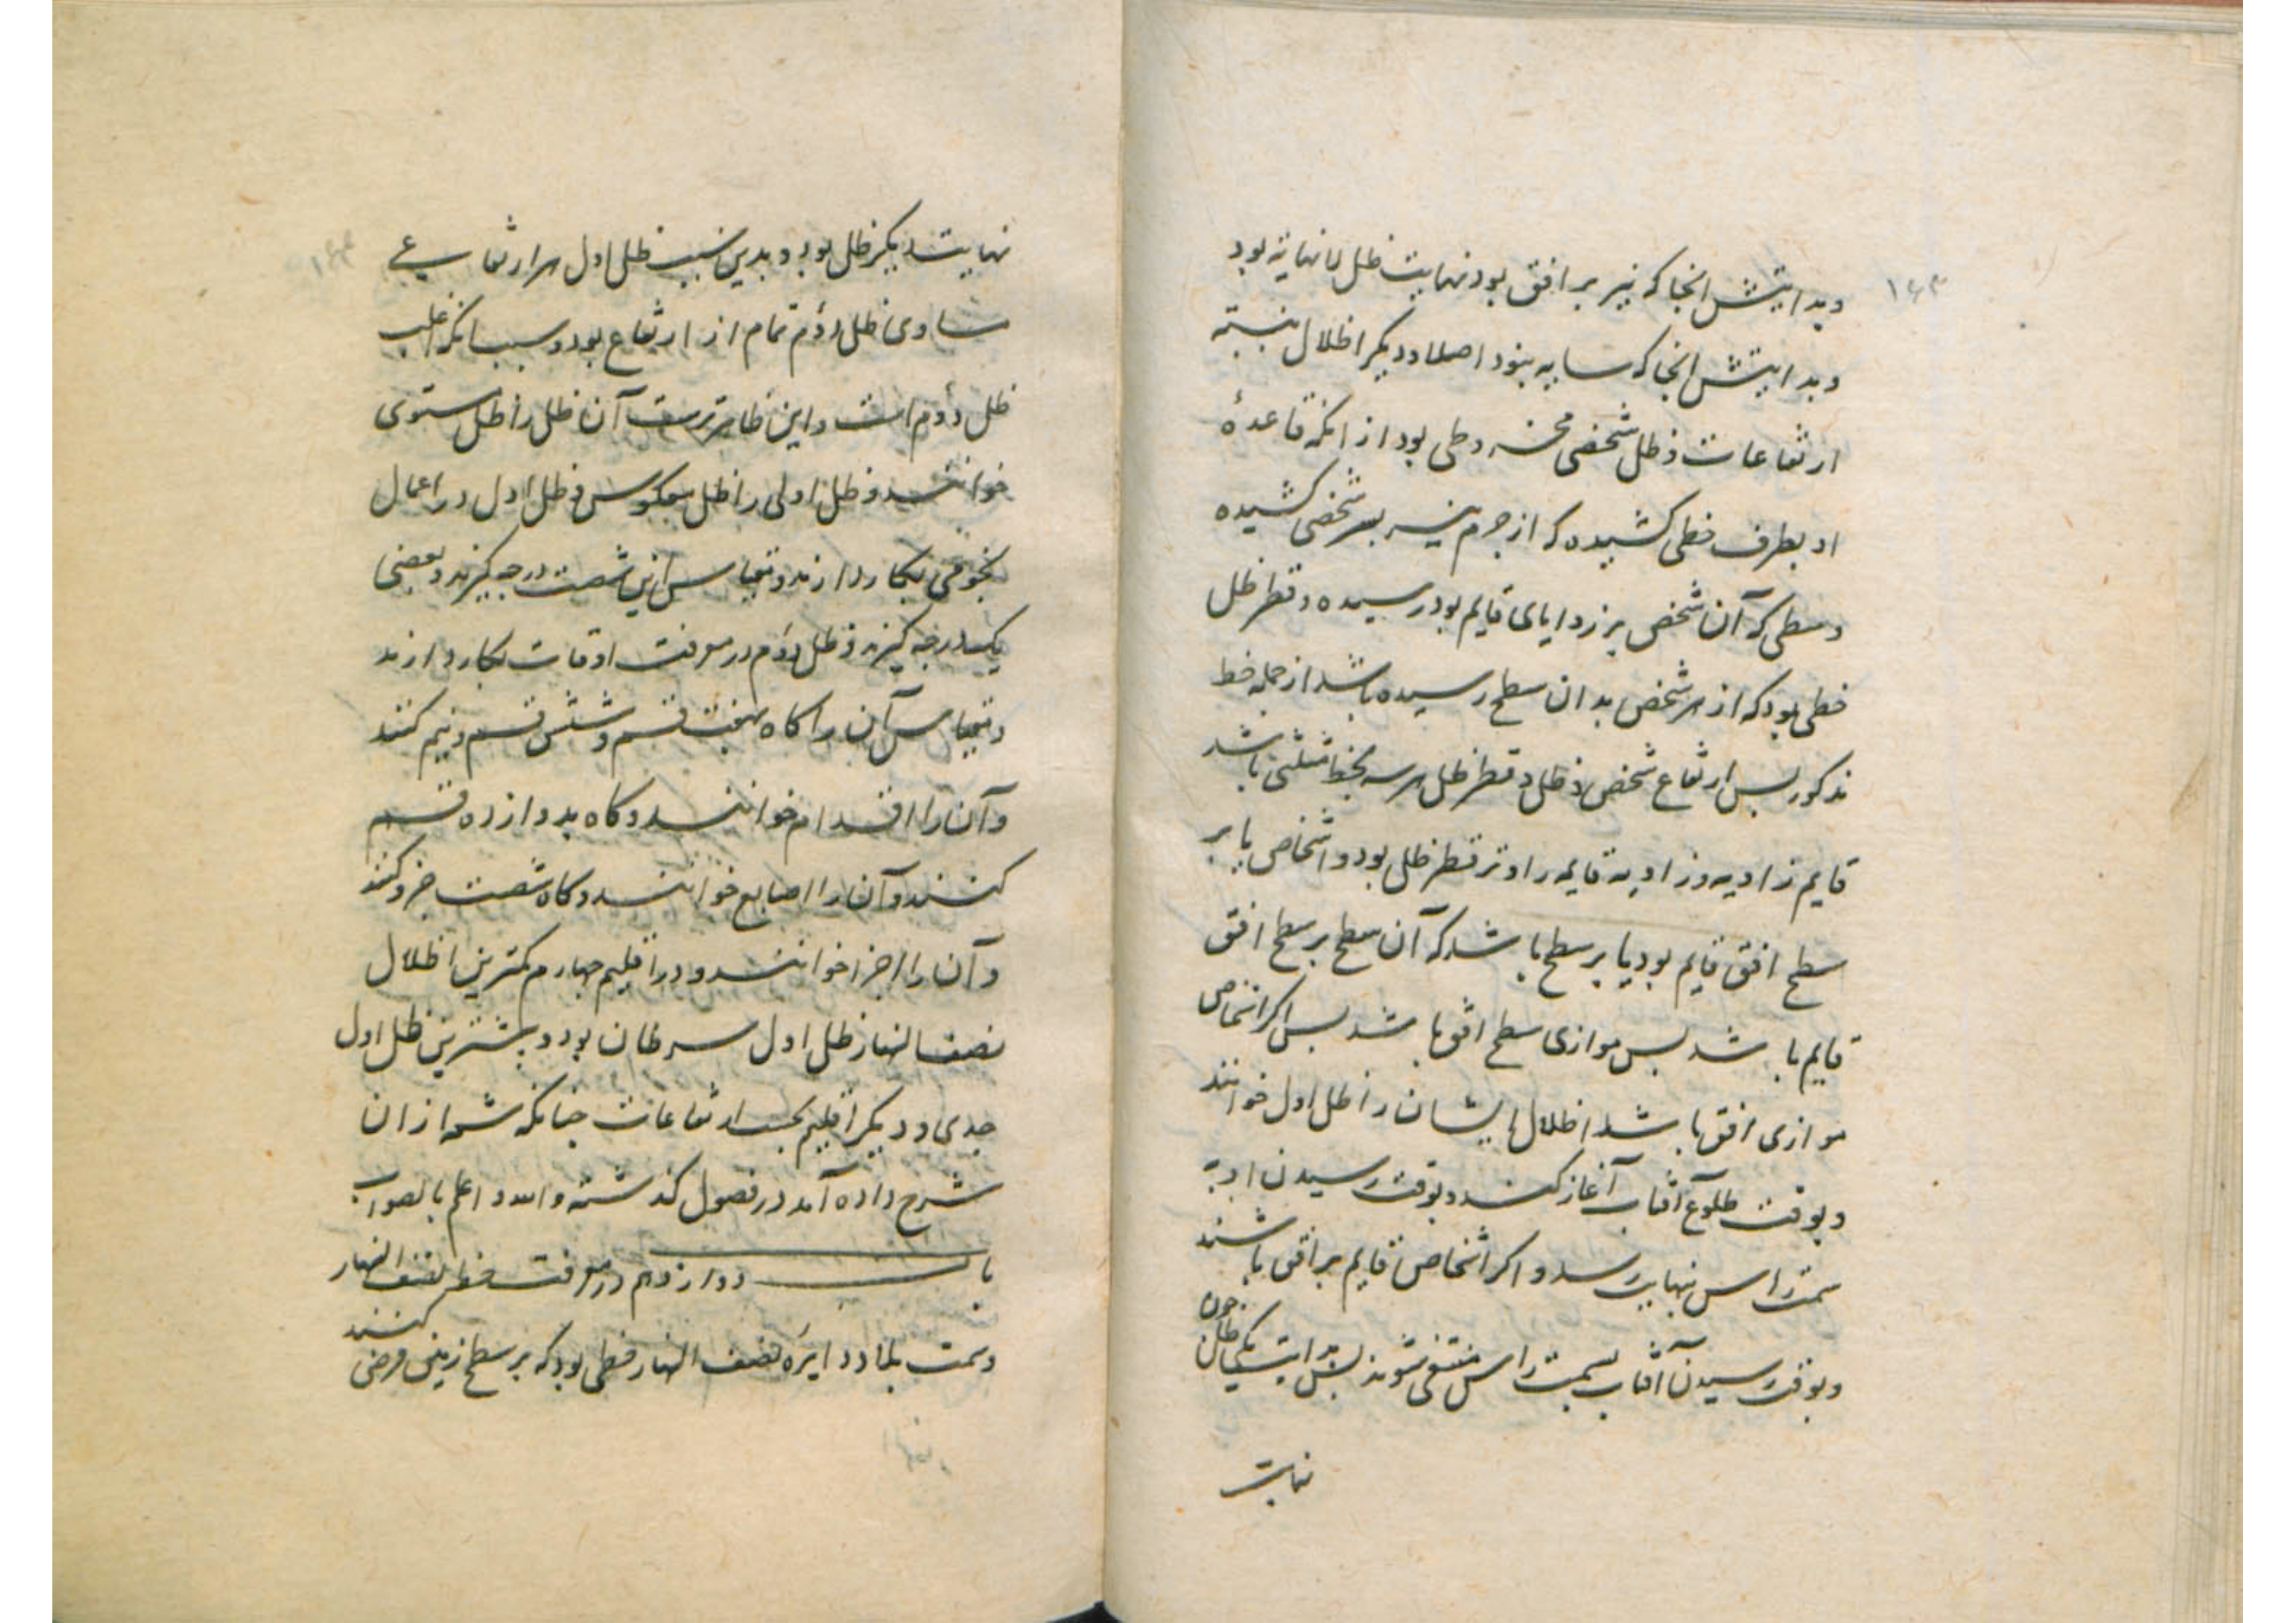 ۱۶۳
وبدایتش انجا که نیر بر افق بود نهایت ظل لانهایه بود
وبدایتش انجا که سایه نبود اصلا و دیکر اظلال بنسبته
ارتفاعات و ظل شخصی مخروطی بود از انکه قاعدهٔ
او بطرف خطی کشیده که از جرم نیر بسر شخص کشیده
وسطی که آن شخص بر زوایای قایم بود رسیده و قطر ظل
خطی بود که از سر شخص بدان سطح رسیده باشد از جمله خط
مذکور بس ارتفاع شخص و ظل و قطر ظل هر سه بخط مثلثی باشد
قایم زاویه و زاویه قایمه را وتر قطر ظل بود و اشخاص یا بر
سطح افق قایم بود یا بر سطح باشد که آن سطح بر سطح افق
قایم باشد بس موازی سطح افق باشد بس اکر اشخاص
موازی افق باشد اظلال ایشان را ظل اول خوانند
وبوقت طلوع آفتاب آغاز کند وبوقت رسیدن او به
سمت راس نهایت رسد و اکر اشخاص قایم بر افق باشند
وبوقت رسیدن آفتاب بسمت راس منتفی شوند بس بدایت یکی ظل چون
نهایت
۱۶۴
نهایت دیکر ظل بود و بدین سبب ظل اول هر ارتفاعی
مساوی ظل دوم تمام از ارتفاع بود و سبب انکه اغلب
ظل دوم است واین ظاهرترست آن ظل را ظل مستوی
خوانند و ظل اولی را ظل معکوس و ظل اول در اعمال
نجومی بکار دارند و مقیاس این شصت درجه کیرند و بعضی
یکدرجه کیرند و ظل دوم در معرفت اوقات بکار دارند
و مقیاس آن را کاه بهفت قسم و شش قسم و نیم کنند
و آن را اقدام خوانند و کاه بدوازده قسم
کنند و آن را اصابع خوانند و کاه شصت جزو کنند
و آن را اجزا خوانند و در اقلیم چهارم کمترین اظلال
نصف النهار ظل اول سرطان بود و بیشترین ظل اول
جدی و دیکر اقلیم بحسب ارتفاعات چنانکه شمه از ان
شرح داده آمد در فصول کذشته والله اعلم بالصواب
باب دوازدهم در معرفت خط نصف النهار
وسمت بلاد دایره نصف النهار خطی بود که بر سطح زمین فرض کنند